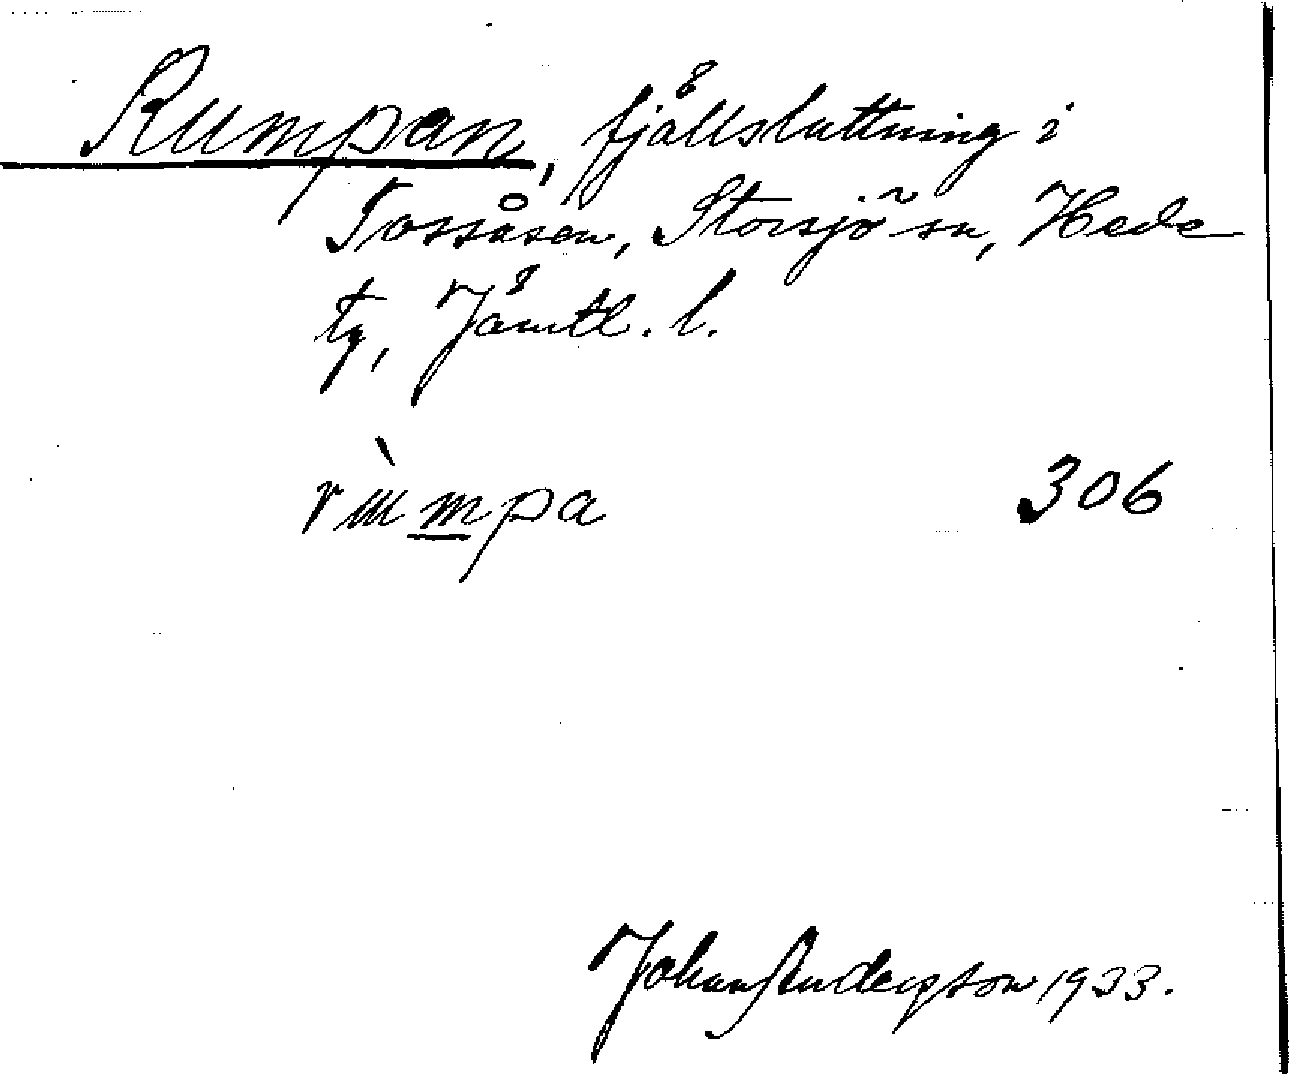 Rumpan, fjällsluttning i
Tossåsen, Storsjö sn, Hede
tg, Jämtl. l.
rùmpa 306
Johan Andersson 1933.